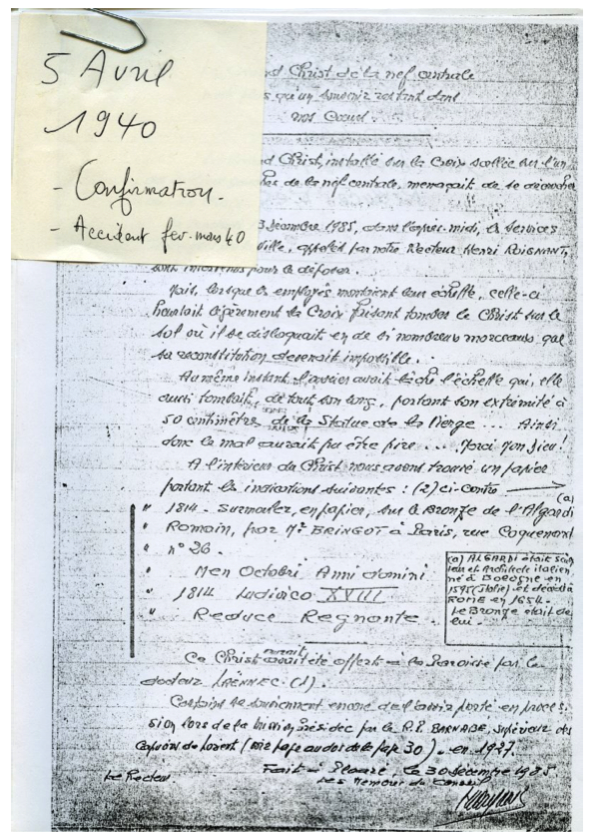 5 Avril
1940
- Confirmation.
- Accident fev-mars 40
Christ de la nef centrale
qu'un souvenir restant dans
nos Cœurs.
Christ, installé sur la Croix scellée sur l'un
de la nef centrale, menaçait de se décrocher
décembre 1985, dans l'après-midi, les Services
ville, appelés par notre Recteur Henri ROIGNANT,
sont intervenus pour le déposer.
Mais, lorsque les employés montaient leur échelle, celle-ci
heurtait légèrement la Croix faisant tomber le Christ sur le
sol où il se disloquait en de si nombreux morceaux, que
sa reconstitution devenait impossible...
Au même instant l'ouvrier avait lâché l'échelle qui, elle
aussi tombait, de tout son long, portant son extrémité à
50 centimètres de la Statue de la Vierge... Ainsi
donc le mal aurait pu être pire... Merci Mon Dieu!
A l'intérieur du Christ nous avons trouvé un papier
portant les indications suivantes : (2) ci-contre
(a)
" 1814. Surmoulez, en papier, sur le Bronze de l'Algardi
" Romain, par Mr BRINGOT à Paris, rue Coquenard
" n° 26.
" Men Octobri Anni domini
" 1814 Ludovico XVIII
" Reduce Regnante.
(a) ALGARDI était Sculp
teur et Architecte italien
né à BOLOGNE en
1595 (Italie) et décédé à
ROME en 1654.
Le Bronze était de
lui.
Ce Christ aurait été offert à la Paroisse par le
docteur LAËNNEC (1).
Certains se souviennent encore de l'avoir porté en proces
sion lors de la Mission présidée par le R.P. BARNABE, supérieur des
Capucins de Lorient (voir page au dos de la page 30). en 1927.
Fait à Ploaré, le 30 décembre 1985
Le Recteur
Les Membres du Conseil